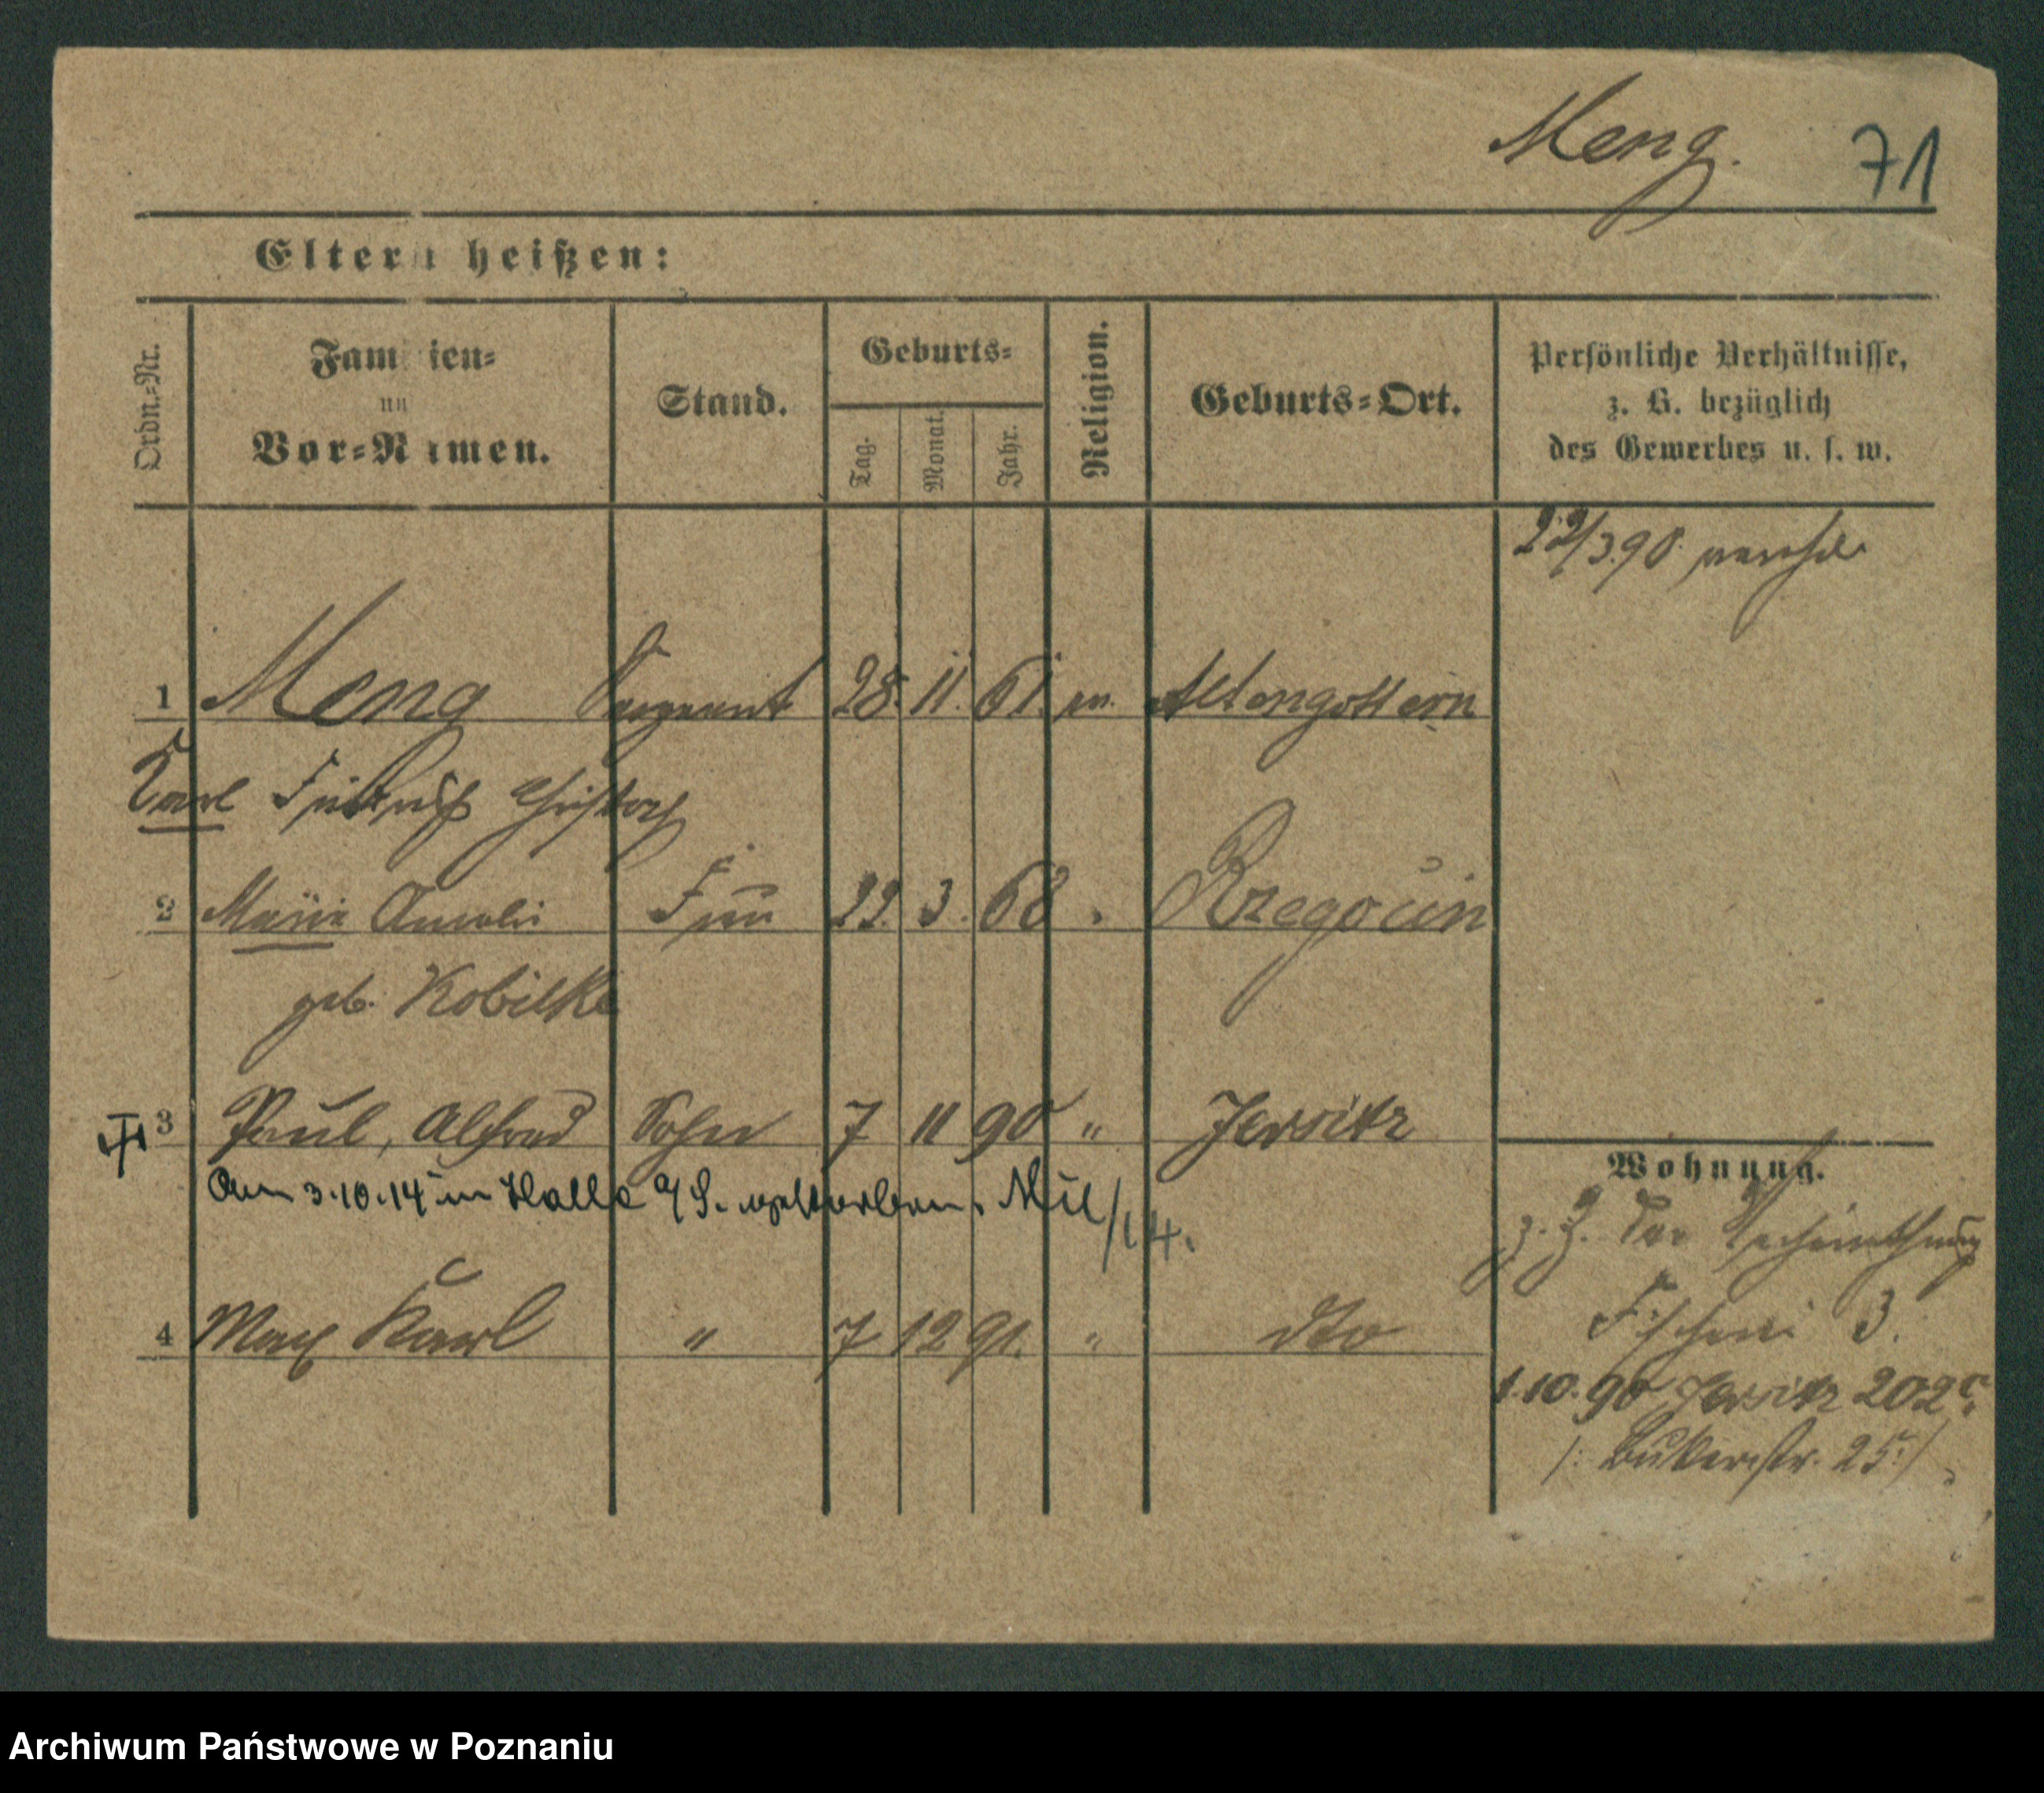 Meng. 71
Eltern heißen:
Ordn.-Nr.
Familien-
un
Vor-Namen.
Stand.
Geburts-
Tag.
Monat.
Jahr.
Religion.
Geburts-Ort.
Persönliche Verhältnisse,
z. B. bezüglich
des Gewerbes u. s. w.
22/3.90
1 Meng Sergeant 28. 11. 61. Altengottern
Karl Friedrich Christoph
2 Marie Amalie Frau 3. 68 Rzegocin
geb. Kobilke
3 Paul, Alfred Sohn 7 11 90 " Jersitz
Am 3.10.14 in Halle a/S. verstorben. Mil/14.
4 Max Karl " 7 12 91. " dto
Wohnung.
z. Z. der
Fischerei 3.
1.10.90 Jersitz 202
/: Bukerstr. 25 :/
Archiwum Państwowe w Poznaniu